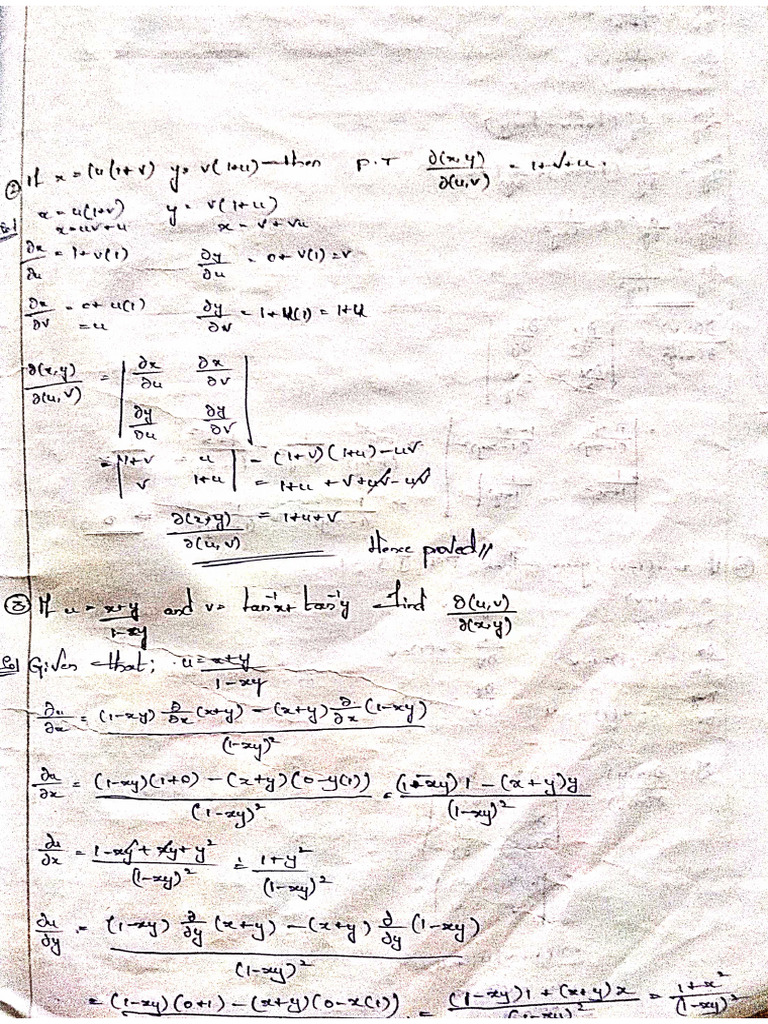 ② If x = (u(1+v) y = v(1+u) then P.T ∂(x,y)/∂(u,v) = 1+v+u.
Sol x = u(1+v) y = v(1+u)
x = uv+u x = v+vu
∂x/∂u = 1+v(1) ∂y/∂u = 0+v(1) = v
∂x/∂v = 0+u(1) ∂y/∂v = 1+u(1) = 1+u
= u
∂(x,y)/∂(u,v) = | ∂x/∂u ∂x/∂v |
| ∂y/∂u ∂y/∂v |
= | 1+v u | = (1+v)(1+u)-uv
| v 1+u | = 1+u+v+uv-uv
∂(x,y)/∂(u,v) = 1+u+v
Hence proved //
③ If u = x+y/1-xy and v = tan⁻¹x+tan⁻¹y find ∂(u,v)/∂(x,y)
Sol Given that; u = x+y/1-xy
∂u/∂x = (1-xy) ∂/∂x (x+y) - (x+y) ∂/∂x (1-xy) / (1-xy)²
∂u/∂x = (1-xy)(1+0) - (x+y)(0-y(1)) / (1-xy)² = (1-xy)1 - (x+y)y / (1-xy)²
∂u/∂x = 1-xy+xy+y² / (1-xy)² = 1+y² / (1-xy)²
∂u/∂y = (1-xy) ∂/∂y (x+y) - (x+y) ∂/∂y (1-xy) / (1-xy)²
= (1-xy)(0+1) - (x+y)(0-x(1)) = (1-xy)1+(x+y)x / (1-xy)² = 1+x² / (1-xy)²